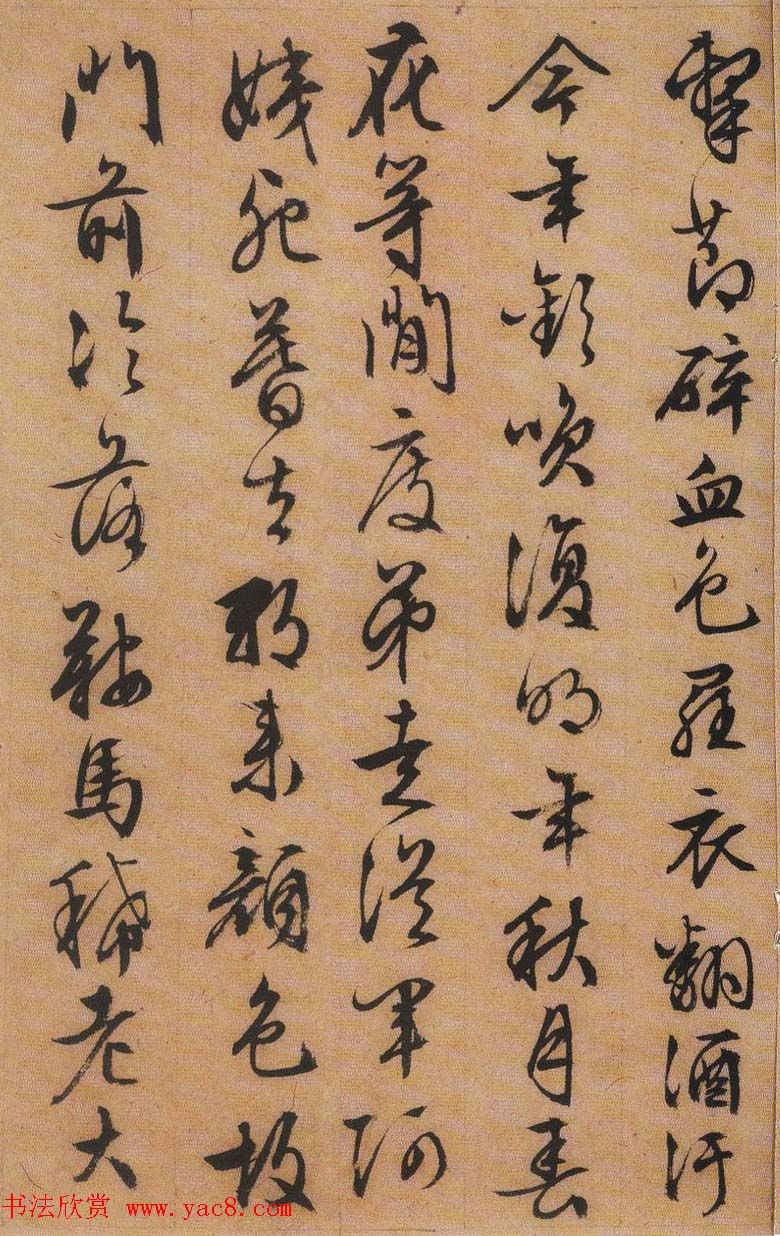 擊節碎血色羅衣翻酒汙
今年歡咲復明年秋月春
花等閒度弟走從軍阿
姨死暮去朝來顏色故
門前冷落鞍馬稀老大
书法欣赏 www.yac8.com